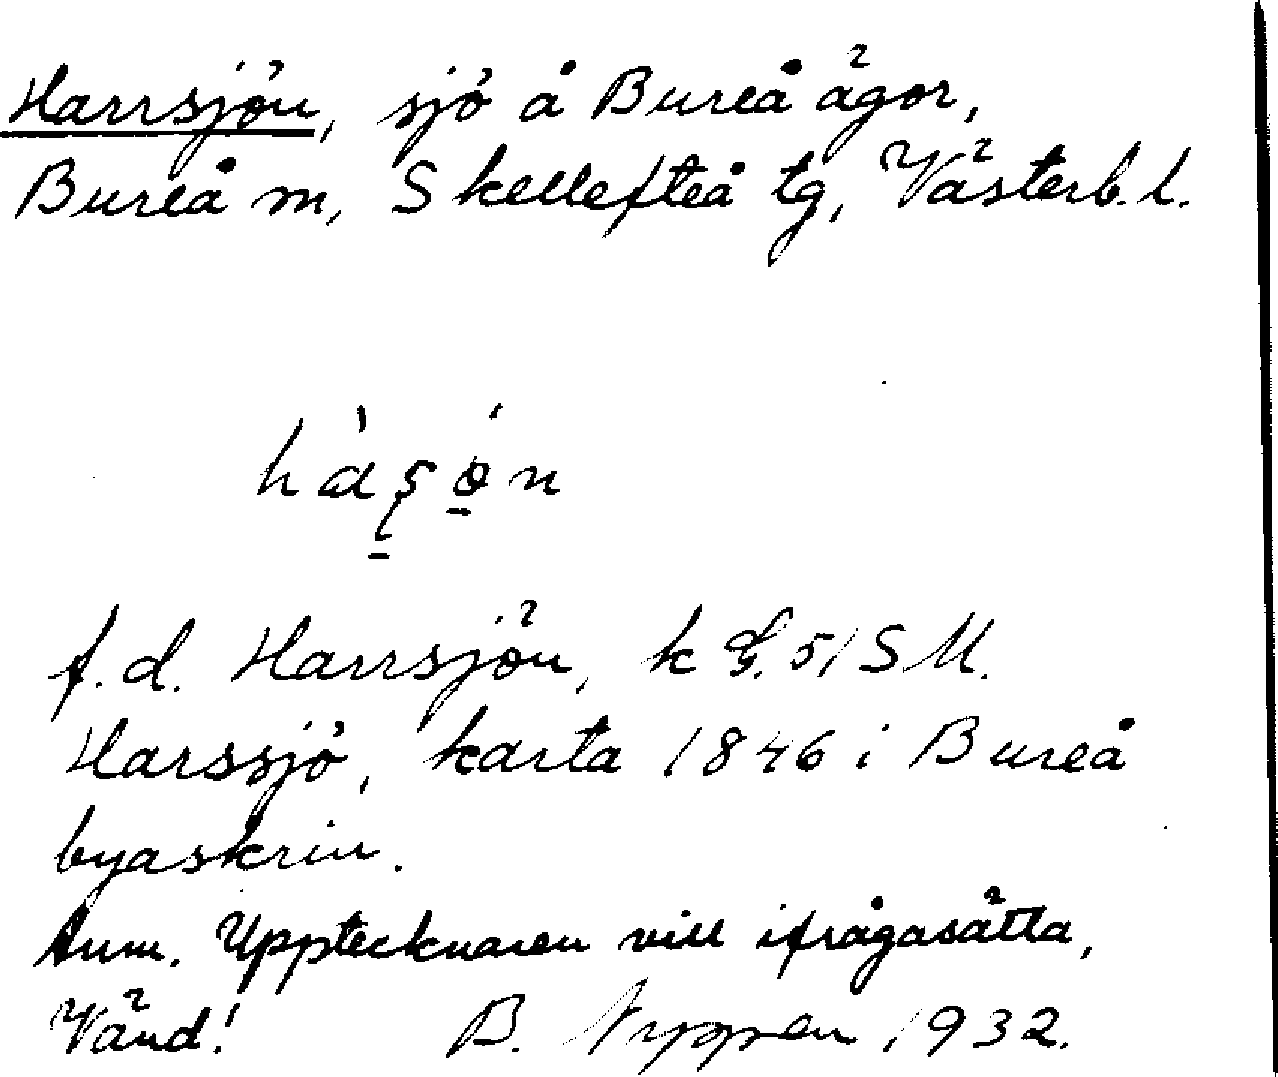 Harrsjön, sjö å Bureå ägor,
Bureå m, Skellefteå tg, Västerb. l.
f.d. Harrsjön, k G. 51 SM.
Harssjö, karta 1846 i Bureå
byaskrin.
Anm. Upptecknaren vill ifrågasätta,
Vänd! B. Nyppen 1932.